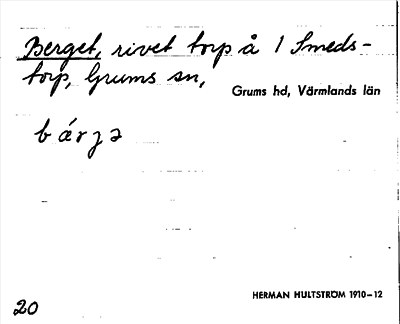 Berget, rivet torp å 1 Smeds-
torp, Grums sn,
Grums hd, Värmlands län
bárjə
HERMAN HULTSTRÖM 1910–12
20